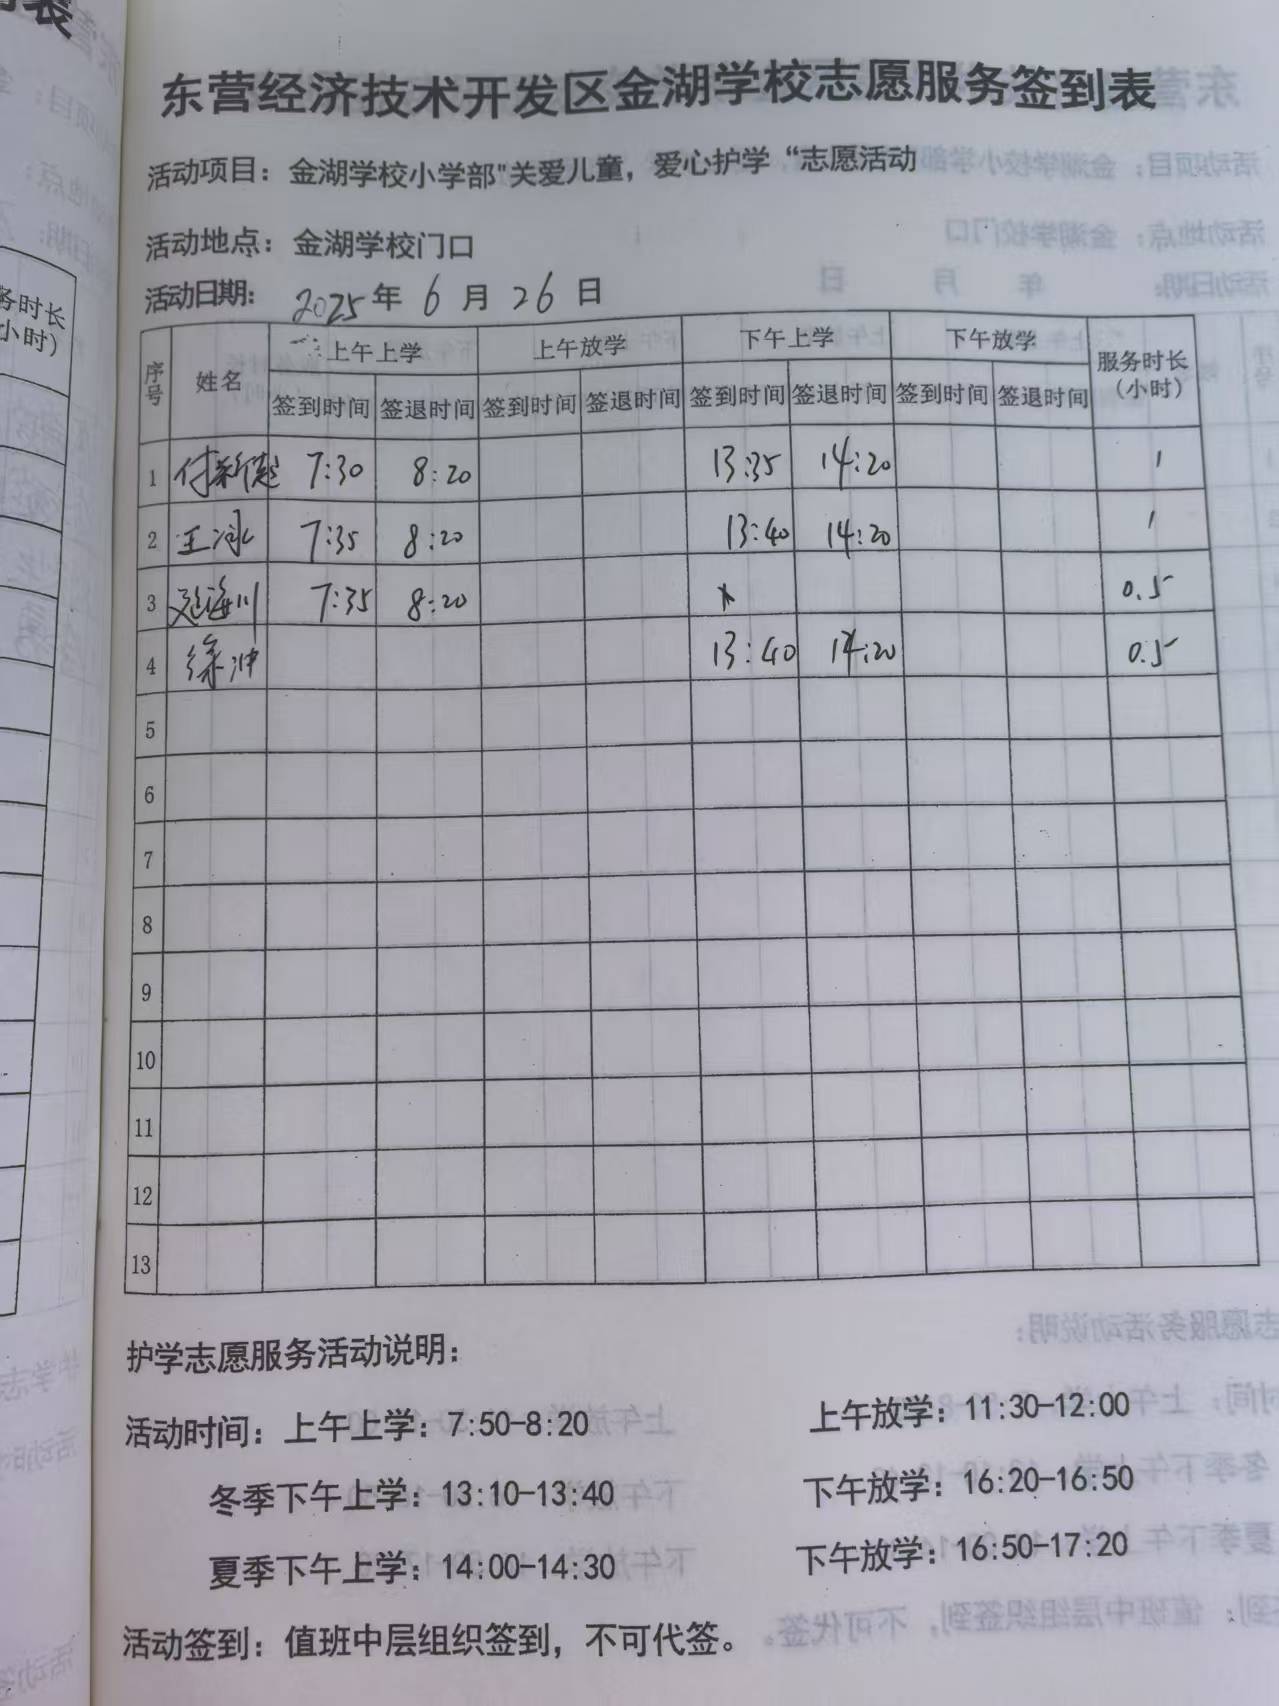 东营经济技术开发区金湖学校志愿服务签到表
活动项目：金湖学校小学部"关爱儿童，爱心护学“志愿活动
活动地点：金湖学校门口
活动日期： 2025年 6 月 26 日
序号 姓名 上午上学 上午放学 下午上学 下午放学 服务时长（小时）
签到时间 签退时间 签到时间 签退时间 签到时间 签退时间 签到时间 签退时间
1 7:30 8:20 13:35 14:20 1
2 王冰 7:35 8:20 13:40 14:20 1
3 海川 7:35 8:20 0.5
4 徐冲 13:40 14:20 0.5
5
6
7
8
9
10
11
12
13
护学志愿服务活动说明：
活动时间：上午上学：7:50-8:20 上午放学：11:30-12:00
冬季下午上学：13:10-13:40 下午放学：16:20-16:50
夏季下午上学：14:00-14:30 下午放学：16:50-17:20
活动签到：值班中层组织签到，不可代签。